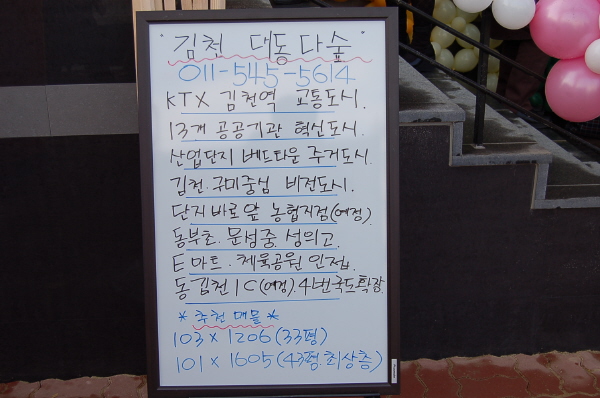 " 김천 대동다숲 "
011-545-5614
KTX 김천역 교통도시.
13개 공공기관 혁신도시.
산업단지 베드타운 주거도시.
김천.구미중심 비전도시.
단지바로앞 농협지점(예정).
동부초. 문성중. 성의고.
E마트. 체육공원 인접.
동김천IC(예정).4번국도확장
* 추천매물 *
103 × 1206 (33평)
101 × 1605 (43평.최상층)